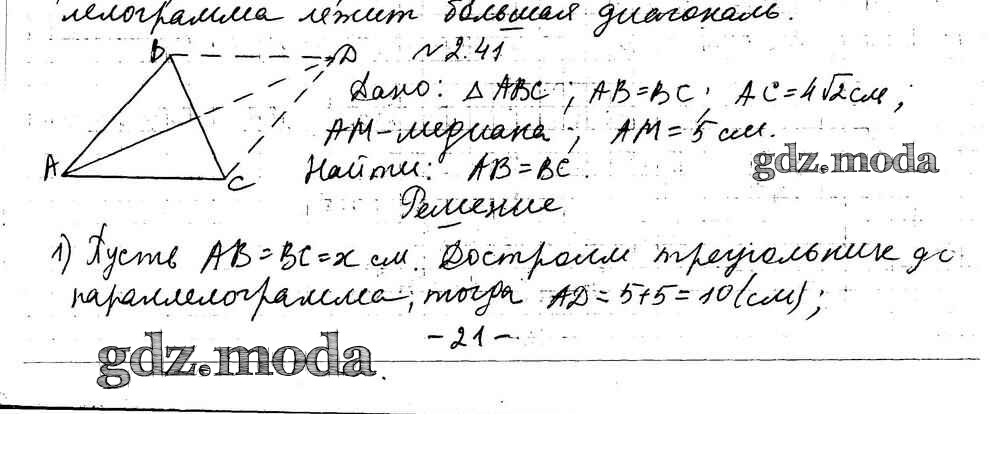 лелограмма лежит большая диагональ.
B D №2.41
Дано: △ABC; AB=BC; AC=4√2см;
AM-медиана; AM=5см.
A C Найти: AB=BC.
gdz.moda
Решение
1) Пусть AB=BC=x см. Достроим треугольник до
параллелограмма, тогда AD=5+5=10(см);
-21-
gdz.moda